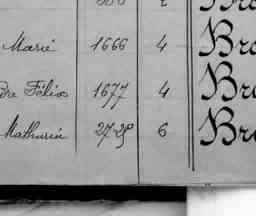 Marie 1666 4 Bro
Félios 1677 4 Bro
Mathurin 6 Bro